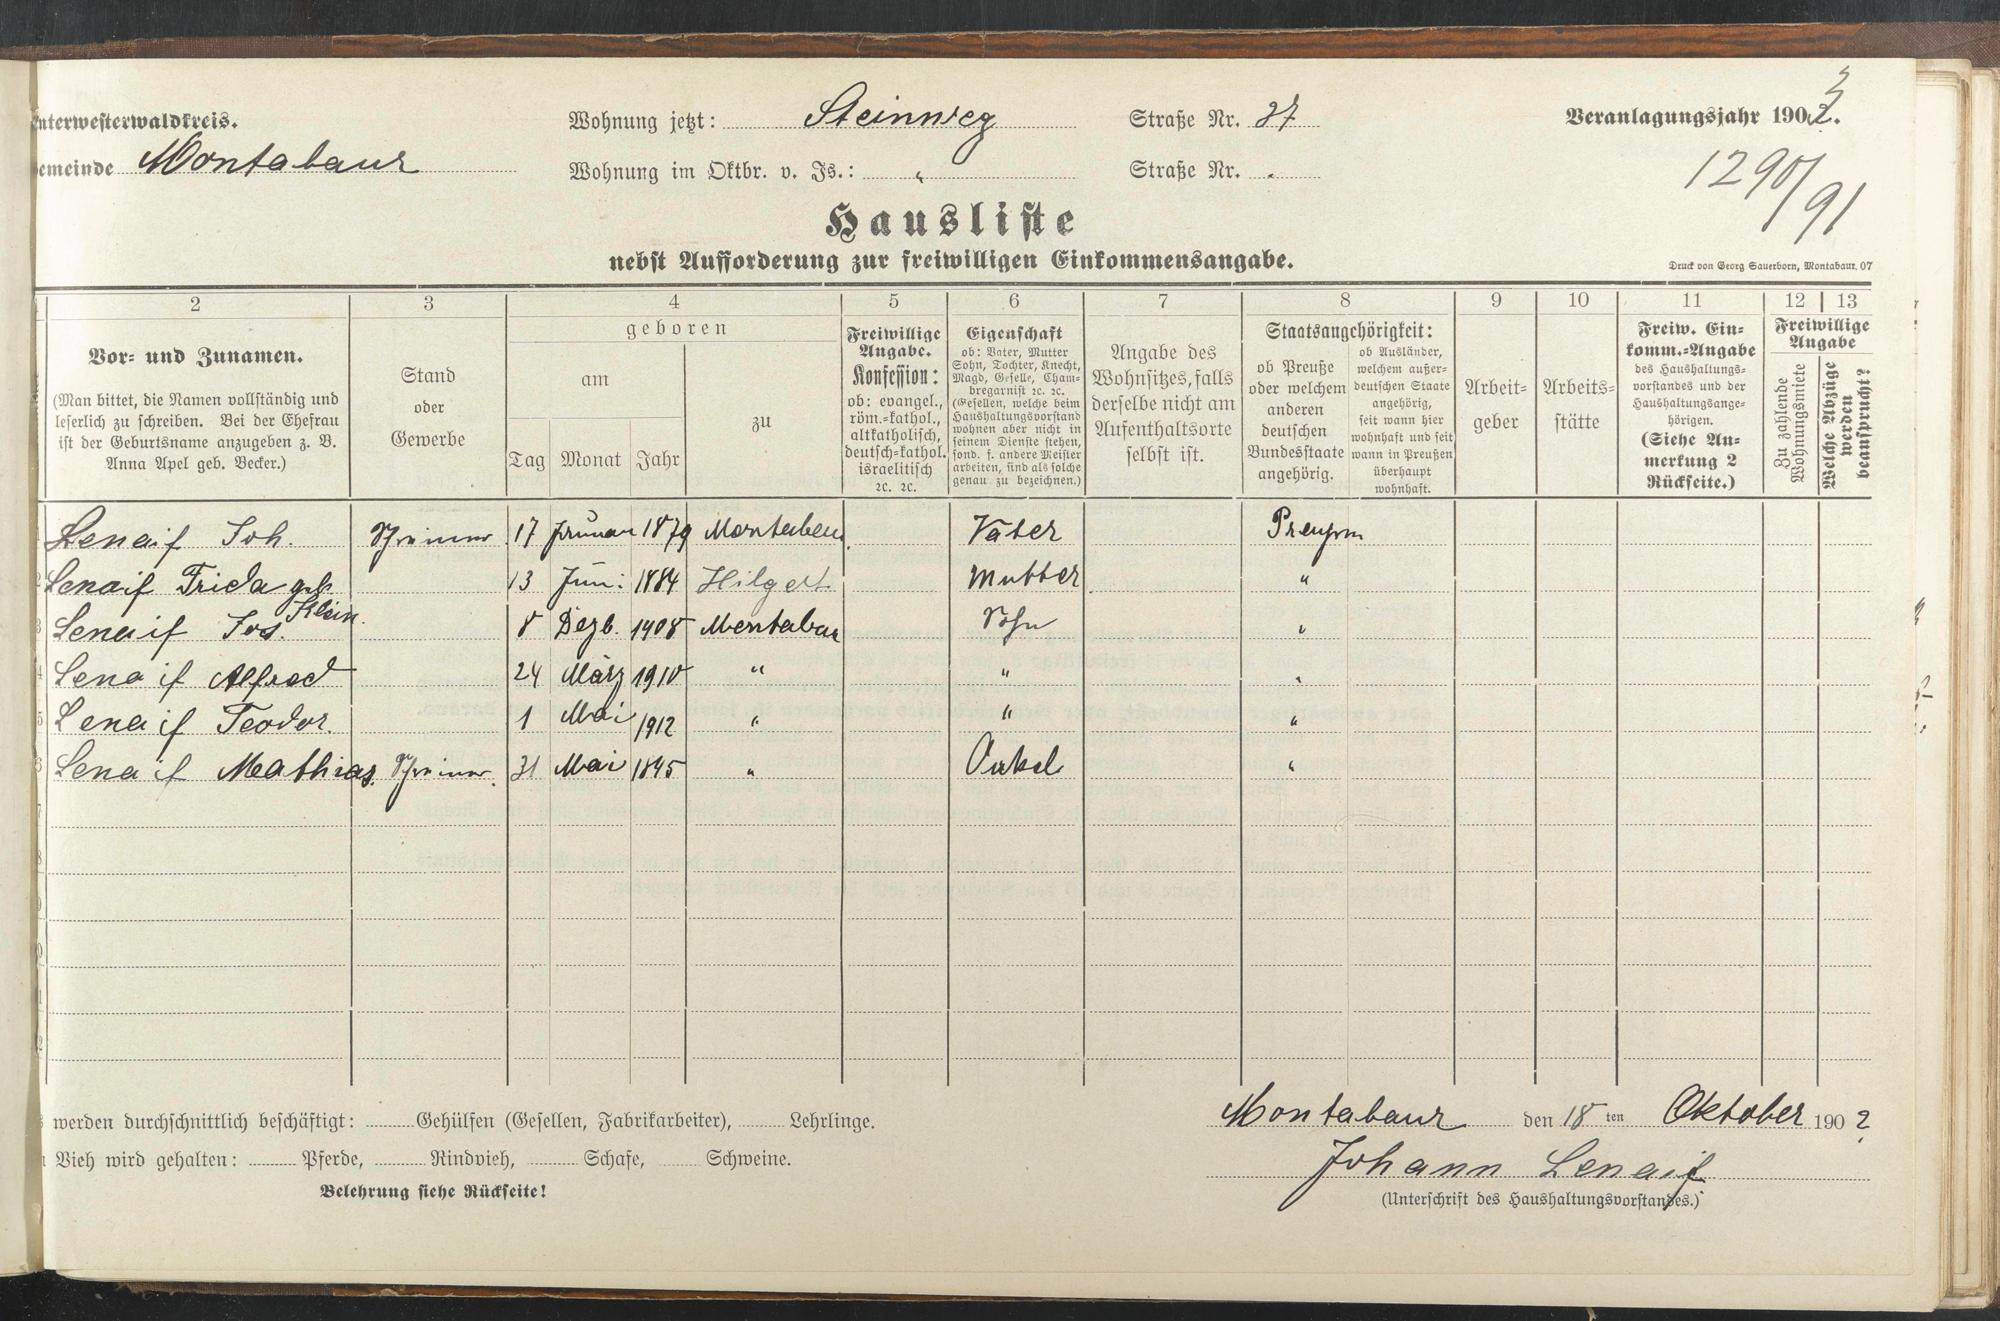 nterwesterwaldkreis.
Wohnung jetzt: Steinweg Straße Nr. 27
Veranlagungsjahr 1903.
emeinde Montabaur
Wohnung im Oktbr. v. Js.: " Straße Nr.
1290/91
Hausliste
nebst Aufforderung zur freiwilligen Einkommensangabe.
Druck von Georg Sauerborn, Montabaur. 07
2 3 4 5 6 7 8 9 10 11 12 13
Vor- und Zunamen.
(Man bittet, die Namen vollständig und
leserlich zu schreiben. Bei der Ehefrau
ist der Geburtsname anzugeben z. B.
Anna Apel geb. Becker.)
Stand
oder
Gewerbe
geboren
am
Tag Monat Jahr
zu
Freiwillige
Angabe.
Konfession:
ob: evangel.,
röm.-kathol.,
altkatholisch,
deutsch-kathol.
israelitisch
ꝛc. ꝛc.
Eigenschaft
ob: Vater, Mutter
Sohn, Tochter, Knecht,
Magd, Geselle, Cham-
bregarnist ꝛc. ꝛc.
(Gesellen, welche beim
Haushaltungsvorstand
wohnen aber nicht in
seinem Dienste stehen,
sond. f. andere Meister
arbeiten, sind als solche
genau zu bezeichnen.)
Angabe des
Wohnsitzes, falls
derselbe nicht am
Aufenthaltsorte
selbst ist.
Staatsangehörigkeit:
ob Preuße
oder welchem
anderen
deutschen
Bundesstaate
angehörig.
ob Ausländer,
welchem außer-
deutschen Staate
angehörig,
seit wann hier
wohnhaft und seit
wann in Preußen
überhaupt
wohnhaft.
Arbeit-
geber
Arbeits-
stätte
Freiw. Ein-
komm.-Angabe
des Haushaltungs-
vorstandes und der
Haushaltungsange-
hörigen.
(Siehe An-
merkung 2
Rückseite.)
Freiwillige
Angabe
Zu zahlende
Wohnungsmiete
Welche Abzüge
werden
beansprucht?
Lenaif Joh. Schreiner 17 Januar 1879 Montabau Vater Preußen
Lenaif Frida geb. 13 Juni 1884 Hilgert Mutter "
Klein.
Lenaif Jos. 8 Dezb. 1908 Montabau Sohn "
Lenaif Alfred 24 März 1910 " " "
Lenaif Teodor. 1 Mai 1912 " " "
Lenaif Mathias. Schreiner 31 Mai 1845 " Onkel "
werden durchschnittlich beschäftigt: Gehülfen (Gesellen, Fabrikarbeiter), Lehrlinge.
Montabaur den 18 ten Oktober 1902
Vieh wird gehalten: Pferde, Rindvieh, Schafe, Schweine.
Johann Lenaif
Belehrung siehe Rückseite!
(Unterschrift des Haushaltungsvorstandes.)